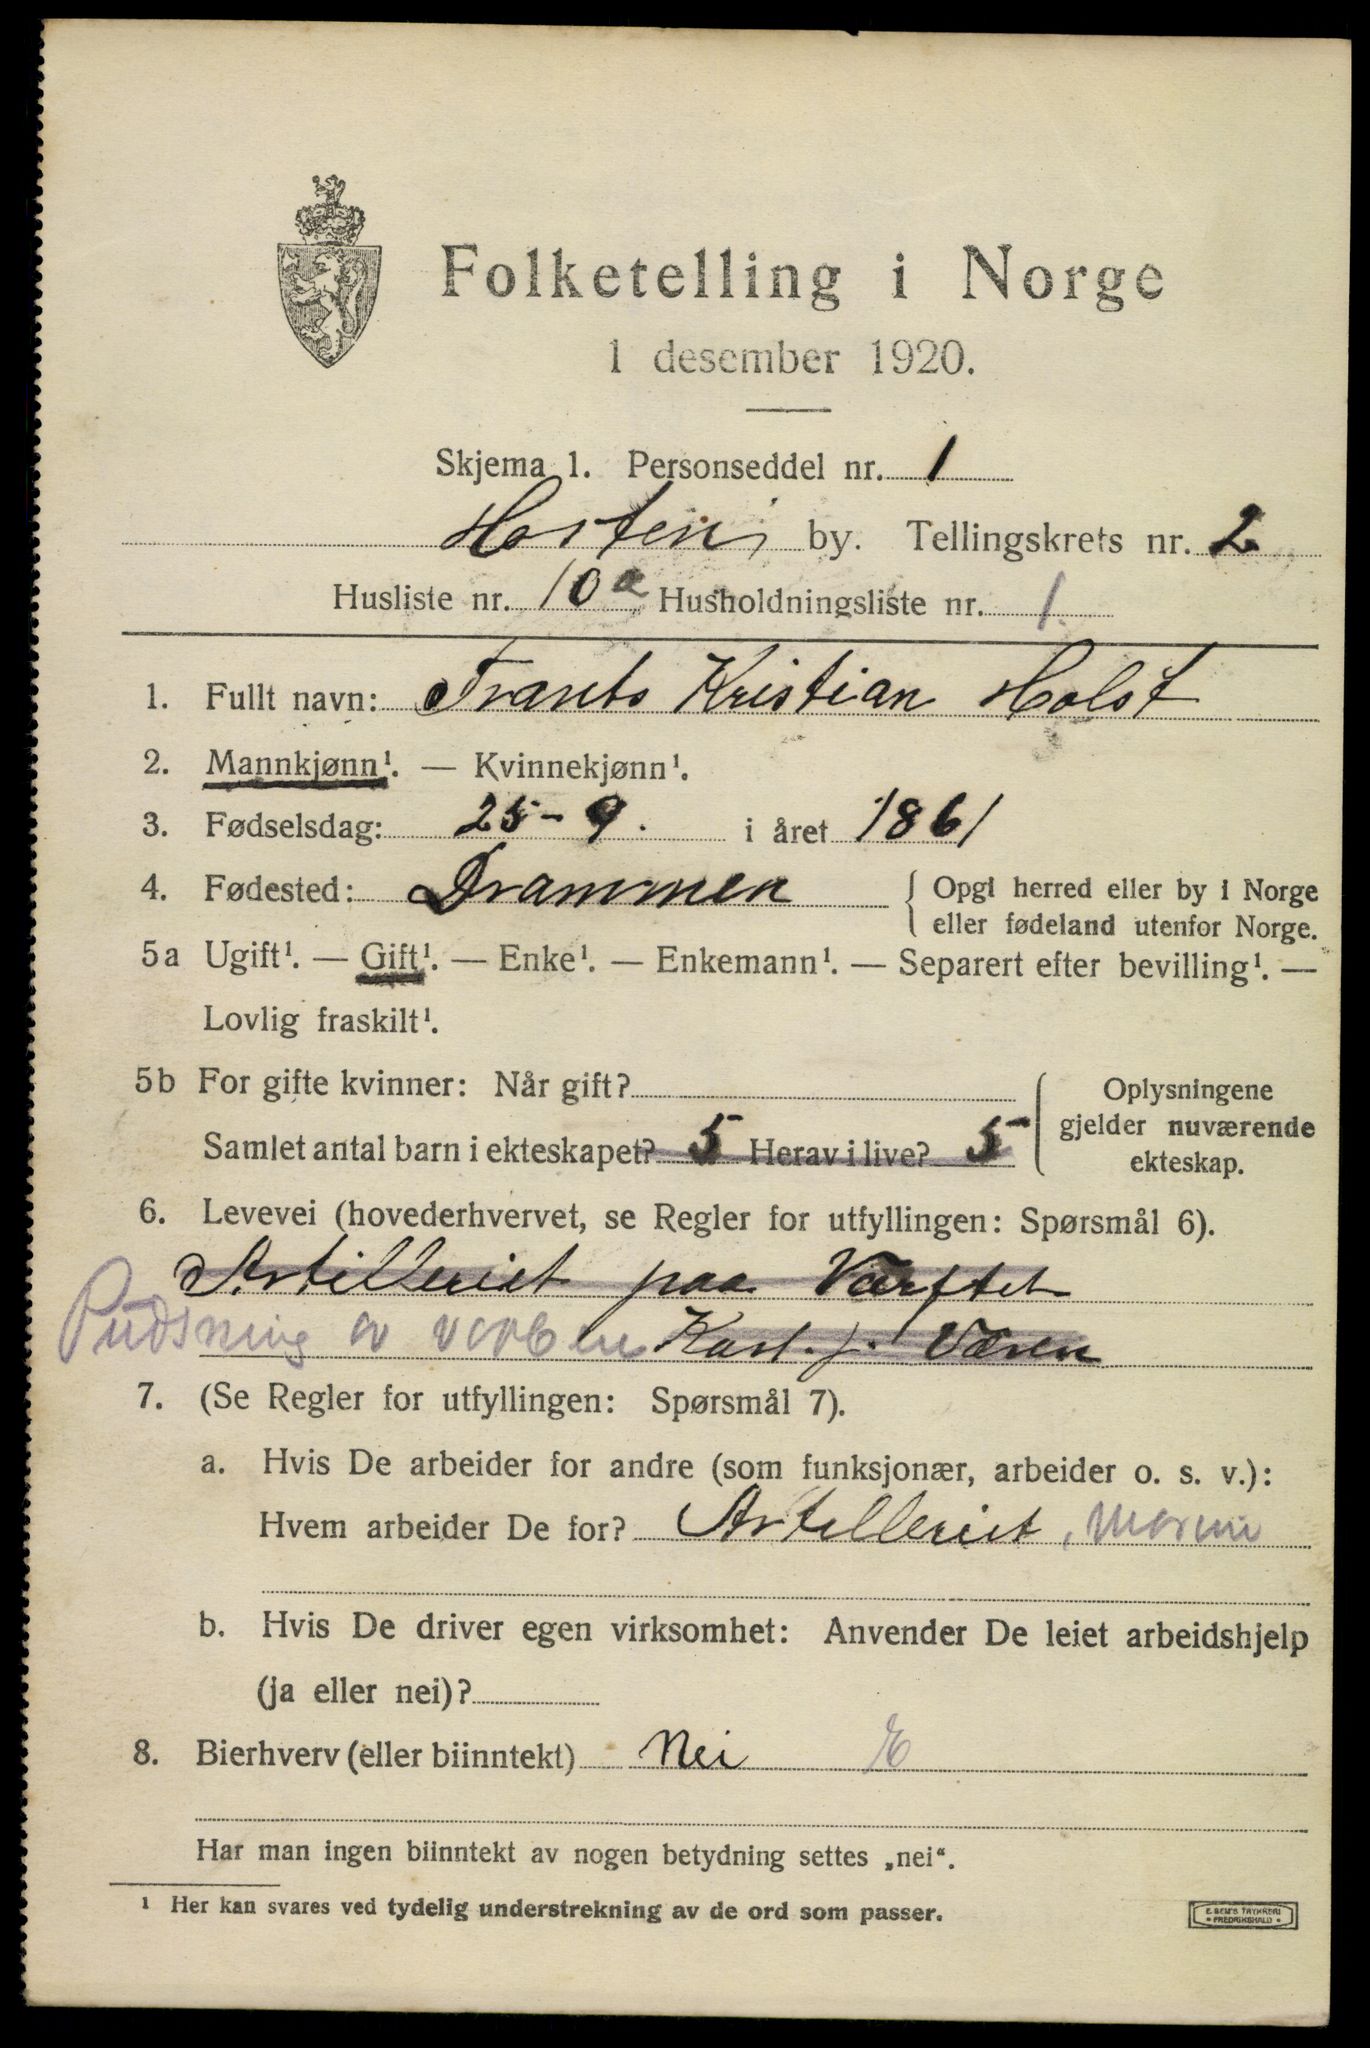 Folketelling i Norge
1 desember 1920.
Skjema 1. Personseddel nr. 1
Horten by. Tellingskrets nr. 2
Husliste nr. 10a Husholdningsliste nr. 1.
1. Fullt navn: Frants Kristian Holst
2. Mannkjønn¹. — Kvinnekjønn¹.
3. Fødselsdag: 25-9. i året 1861
4. Fødested: Drammen { Opgi herred eller by i Norge
eller fødeland utenfor Norge.
5a Ugift¹. — Gift¹. — Enke¹. — Enkemann¹. — Separert efter bevilling¹. —
Lovlig fraskilt¹.
5b For gifte kvinner: Når gift?
Samlet antal barn i ekteskapet? 5 Herav i live? 5
Oplysningene
gjelder nuværende
ekteskap.
6. Levevei (hovederhvervet, se Regler for utfyllingen: Spørsmål 6).
Artilleriet paa Værftet
Pudsning av
7. (Se Regler for utfyllingen: Spørsmål 7).
a. Hvis De arbeider for andre (som funksjonær, arbeider o. s. v.):
Hvem arbeider De for? Artilleriet, Marine
b. Hvis De driver egen virksomhet: Anvender De leiet arbeidshjelp
(ja eller nei)?
8. Bierhverv (eller biinntekt) Nei E
Har man ingen biinntekt av nogen betydning settes „nei“.
¹ Her kan svares ved tydelig understrekning av de ord som passer.
E. SEM'S TRYKKERI
• FREDRIKSHALD •